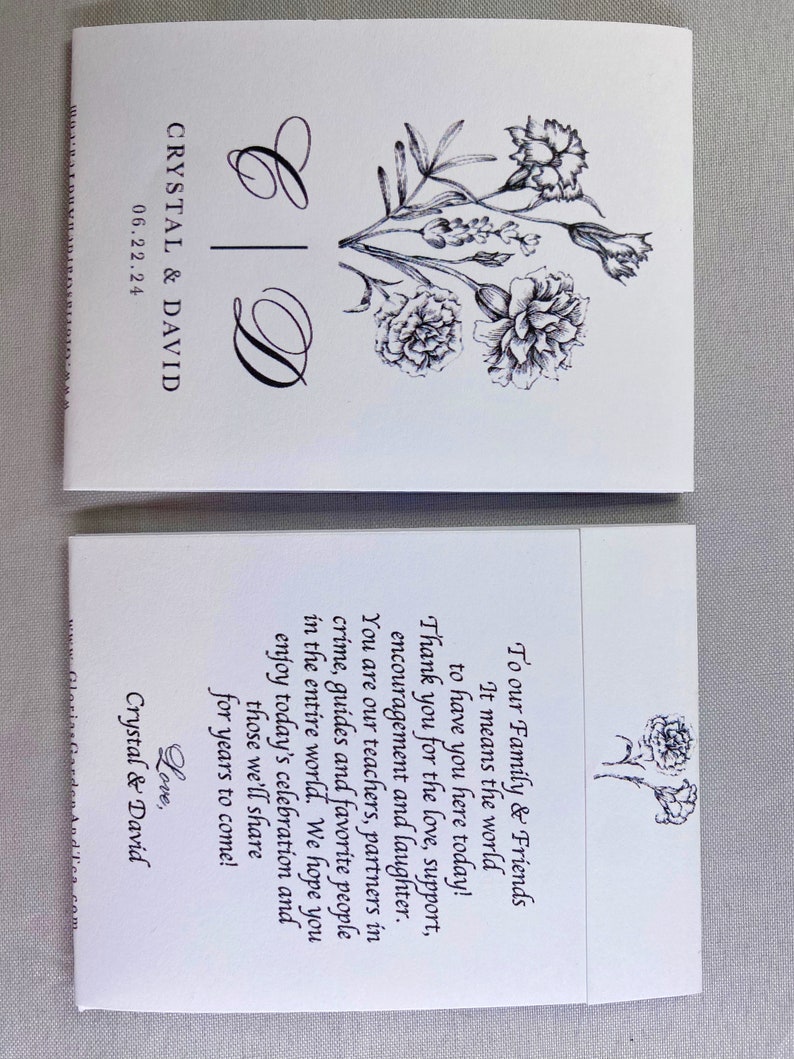 C | D
CRYSTAL & DAVID
06.22.24
To our Family & Friends
It means the world
to have you here today!
Thank you for the love, support,
encouragement and laughter.
You are our teachers, partners in
crime, guides and favorite people
in the entire world. We hope you
enjoy today's celebration and
those we'll share
for years to come!
Love,
Crystal & David
www.GloriasGardenAndTea.com